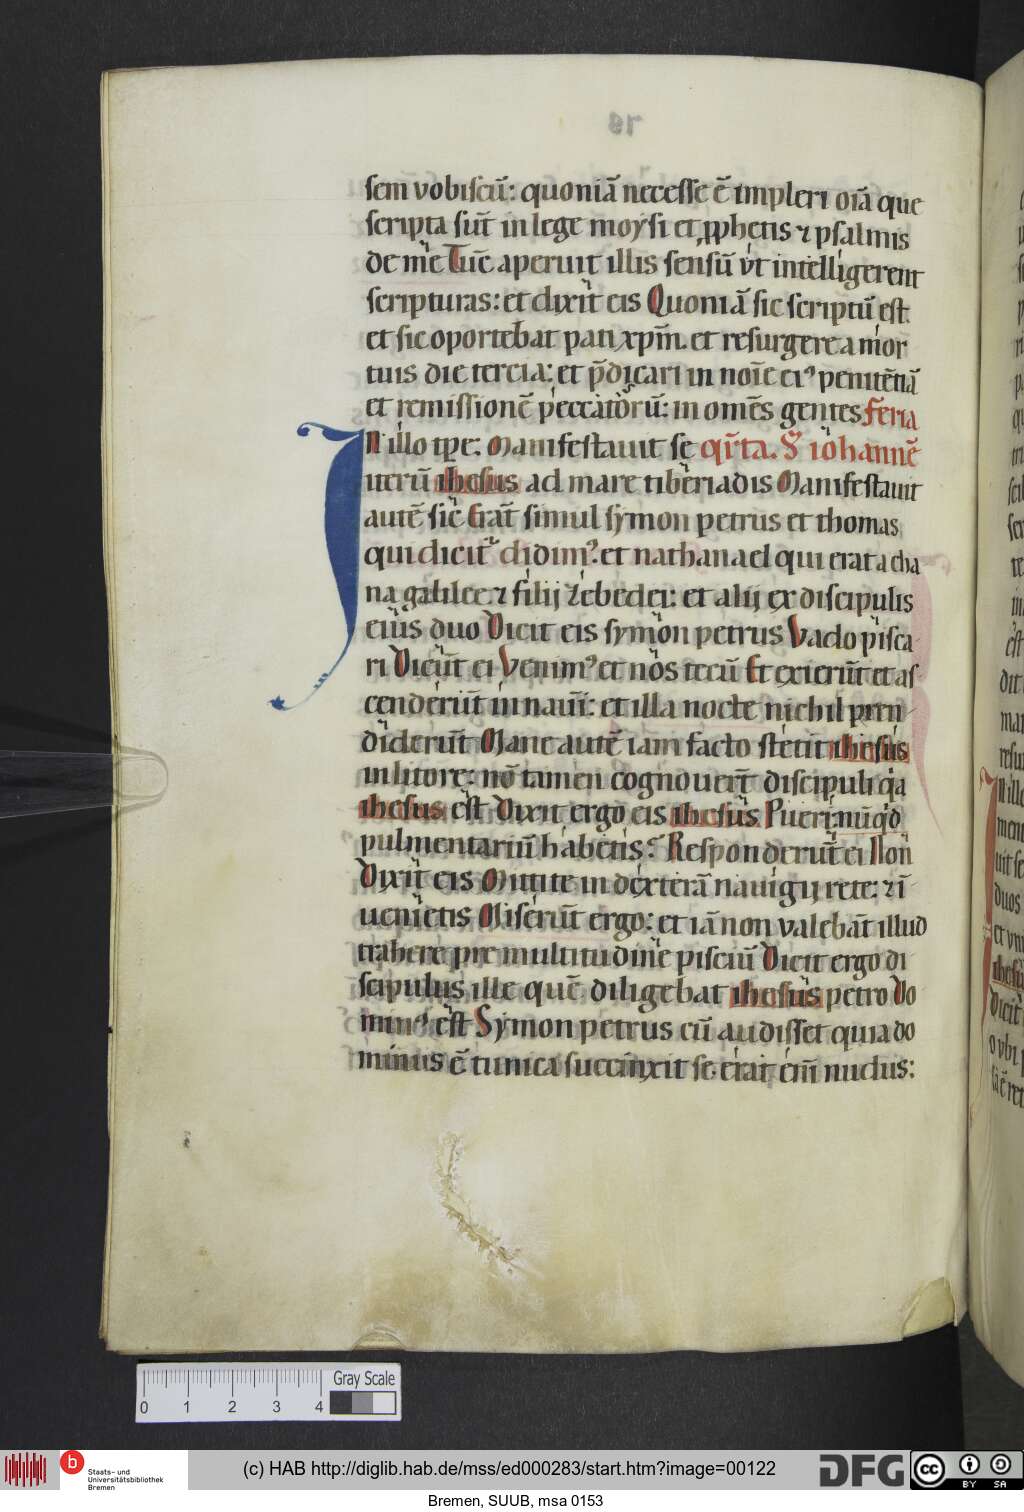 sem vobiscū: quoniā necesse ē impleri oīa que
scripta sūt in lege moysi et ꝓphetis ⁊ psalmis
de me Tūc aperuit illis sensū vt intelligerent
scripturas: et dixit eis Quoniā sic scriptū est
et sic oportebat pati xpm̄. et resurgere a mor
tuis die tercia: et p̄dicari in noīe eiꝰ penitētiā
et remissionē peccatorū: in omēs gentes feria
In illo tpe: Manifestauit se qr̄ta. S iohannē
iterū ihesus ad mare tiberiadis Manifestauit
autē sic Erāt simul symon petrus et thomas
qui dicitᷣ didimꝰ. et nathanael qui erat a cha
na galilee. ⁊ filij zebedei: et alij ex discipulis
eius duo Dicit eis symon petrus Vado pisca
ri Dicūt ei Venimꝰ et nos tecū Et exierūt et as
cenderūt in nauī: et illa nocte nichil pren
diderūt Mane autē iam facto stetit ihesus
in litore: nō tamen cognouerūt discipuli qa
ihesus est Dixit ergo eis ihesus Pueri: nūqd
pulmentariū habetis? Responderūt ei Non
Dixit eis Mittite in dexterā nauigij rete: ⁊ ī
uenietis Miserūt ergo: et iā non valebāt illud
trahere pre multitudine pisciū Dicit ergo di
scipulus ille quē diligebat ihesus petro Do
minꝰ est Symon petrus cū audisset quia do
minus ē tunica succinxit se. erat em̄ nudus:
Gray Scale
0 1 2 3 4
b
Staats- und
Universitätsbibliothek
Bremen
(c) HAB http://diglib.hab.de/mss/ed000283/start.htm?image=00122
DFG
cc BY SA
Bremen, SUUB, msa 0153